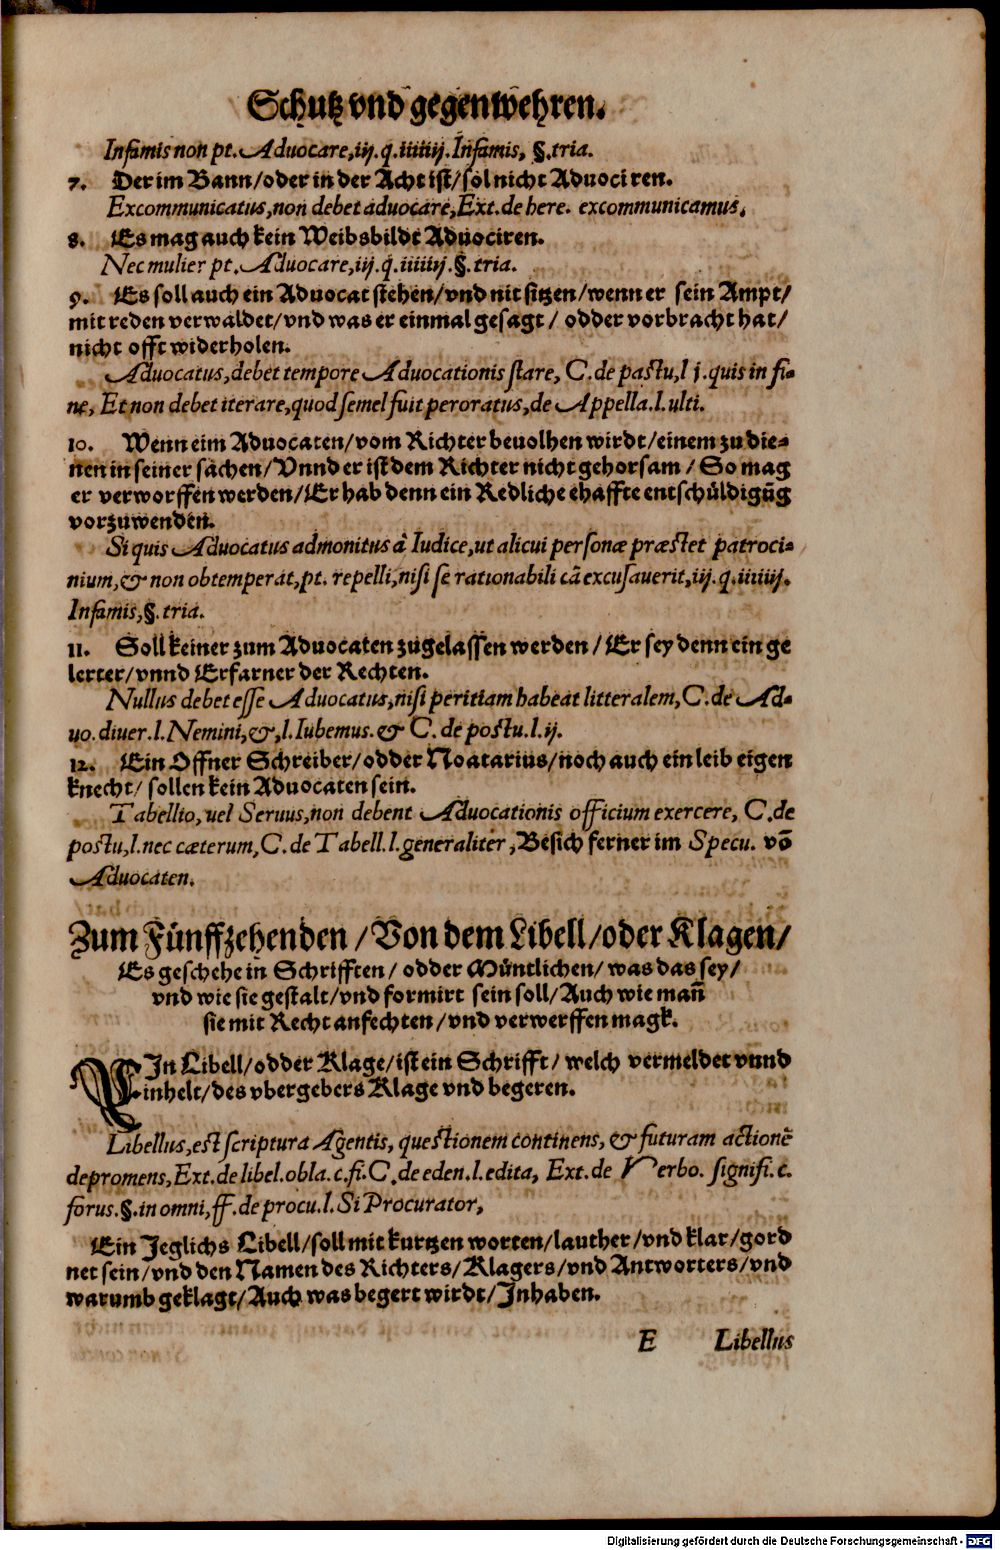 Schutz vnd gegenwehren.
Infamis non pt. Aduocare, iij. q. iiiiij. Infamis, §. tria.
7. Der im Bann/oder in der Acht ist/sol nicht Aduociren.
Excommunicatus, non debet aduocare, Ext. de here. excommunicamus,
8. Es mag auch kein Weibsbildt Aduociren.
Nec mulier pt. Aduocare, iij. q. iiiiij. §. tria.
9. Es soll auch ein Aduocat stehen/vnd nit sitzen/wenn er sein Ampt/
mit reden verwaldet/vnd was er einmal gesagt/ odder vorbracht hat/
nicht offt widerholen.
Aduocatus, debet tempore Aduocationis stare, C. de pastu, l j. quis in fi-
ne, Et non debet iterare, quod semel fuit peroratus, de Appella. l. ulti.
10. Wenn eim Aduocaten/vom Richter beuolhen wirdt/einem zu die-
nen in seiner sachen/Vnnd er ist dem Richter nicht gehorsam/ So mag
er verworffen werden/Er hab denn ein Redliche ehaffte entschüldigũg
vorzuwenden.
Si quis Aduocatus admonitus à Iudice, ut alicui personæ præstet patroci-
nium, & non obtemperat, pt. repelli, nisi se rationabili cã excusauerit, iij. q. iiiiij.
Infamis, §. tria.
11. Soll keiner zum Aduocaten zugelassen werden/ Er sey denn ein ge
lerter/vnnd Erfarner der Rechten.
Nullus debet esse Aduocatus, nisi peritiam habeat litteralem, C. de Ad-
uo. diuer. l. Nemini, &, l. Iubemus. & C. de postu. l. ij.
12. Ein Offner Schreiber/odder Noatarius/noch auch ein leib eigen
knecht/ sollen kein Aduocaten sein.
Tabellio, uel Seruus, non debent Aduocationis officium exercere, C. de
postu, l. nec cæterum, C. de Tabell. l. generaliter, Besich ferner im Specu. võ
Aduocaten.
Zum Fünffzehenden/Von dem Libell/oder Klagen/
Es geschehe in Schrifften/ odder Müntlichen/ was das sey/
vnd wie sie gestalt/vnd formirt sein soll/Auch wie mañ
sie mit Recht anfechten/vnd verwerffen magk.
EIn Libell/odder Klage/ist ein Schrifft/ welch vermeldet vnnd
inhelt/des vbergebers Klage vnd begeren.
Libellus, est scriptura Agentis, questionem continens, & futuram actionẽ
depromens, Ext. de libel. obla. c. fi. C. de eden. l. edita, Ext. de Verbo. signifi. c.
forus. §. in omni, ff. de procu. l. Si Procurator,
Ein Jeglichs Libell/soll mit kurtzen worten/lauther/vnd klar/gord
net sein/vnd den Namen des Richters/Klagers/vnd Antworters/vnd
warumb geklagt/Auch was begert wirdt/Inhaben.
E Libellus
Digitalisierung gefördert durch die Deutsche Forschungsgemeinschaft - DFG